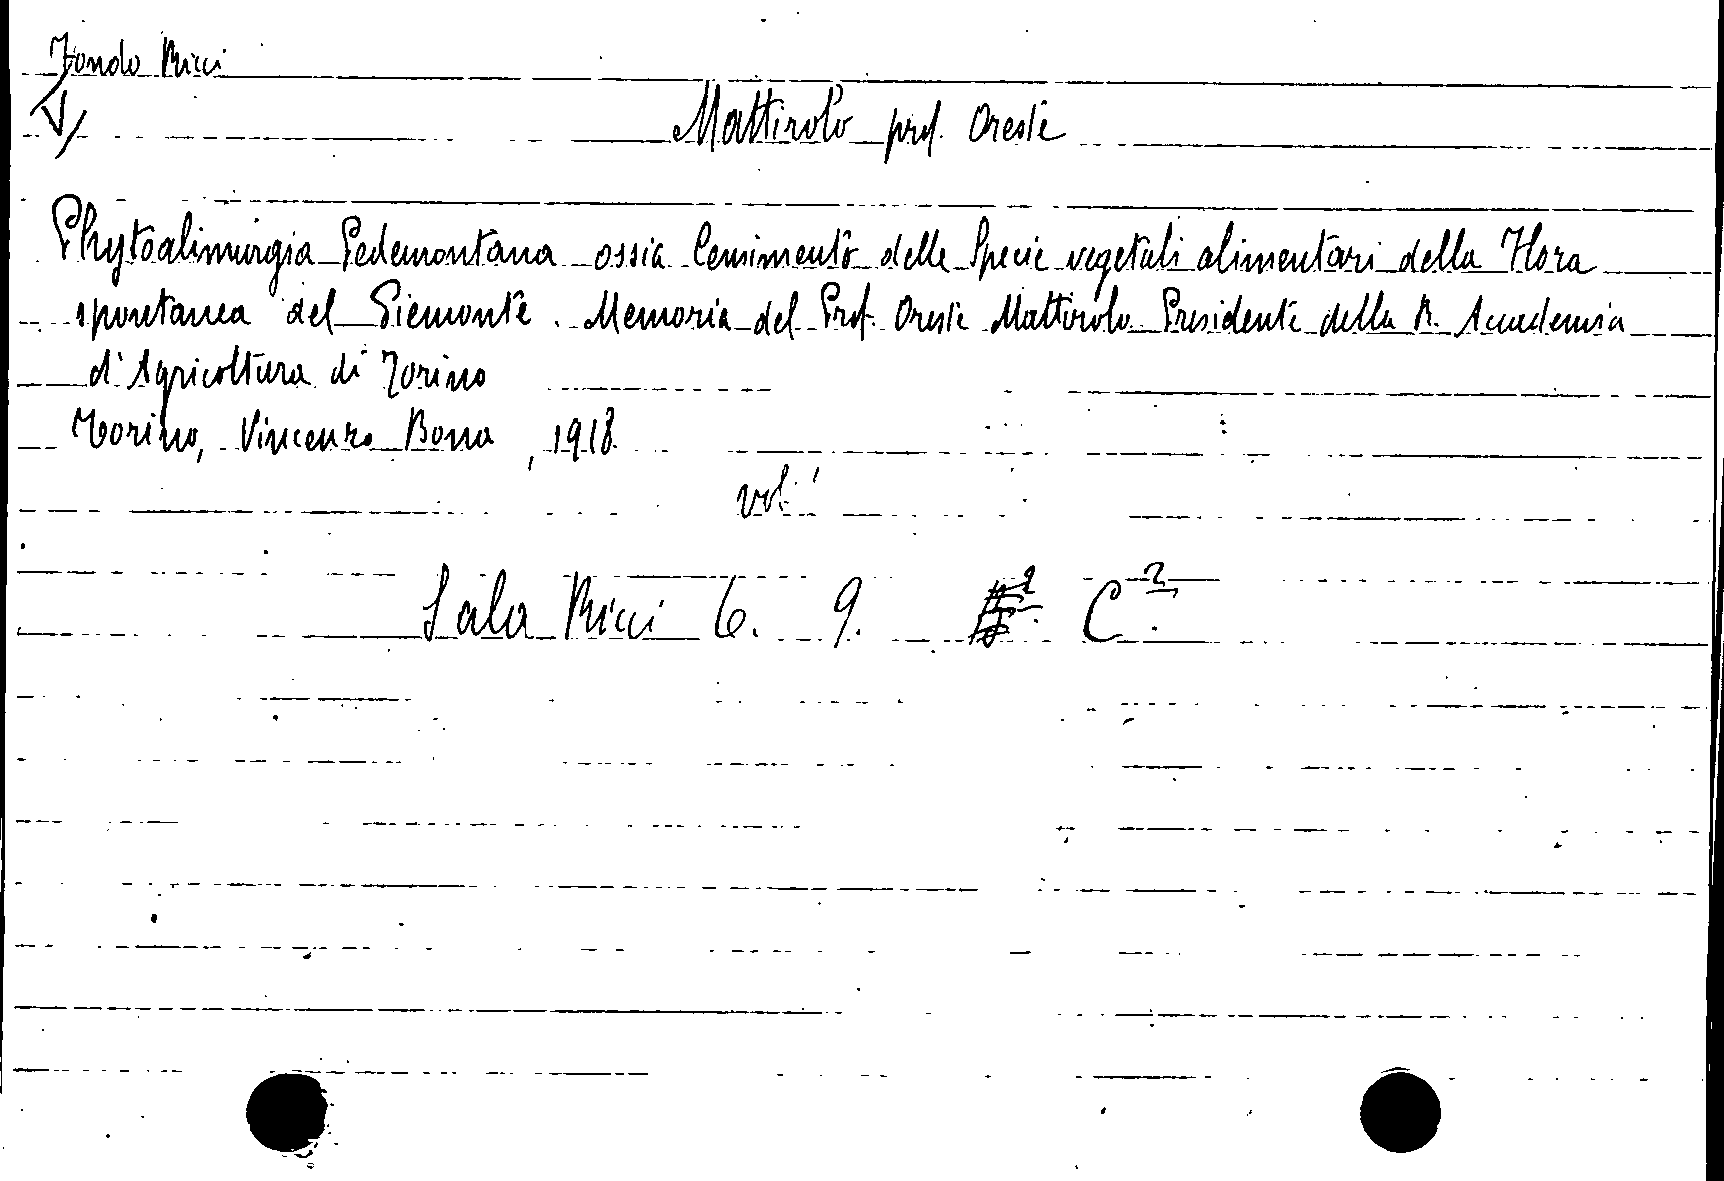 Fondo Ricci
V
Mattirolo prof. Oreste
Phytoalimurgia Pedemontana ossia Censimento delle Specie vegetali alimentari della Flora
spontanea del Piemonte. Memoria del Prof. Oreste Mattirolo Presidente della R. Accademia
d'Agricoltura di Torino
Torino, Vincenzo Bona, 1918
vol. 1
Sala Ricci 6. 9. C².